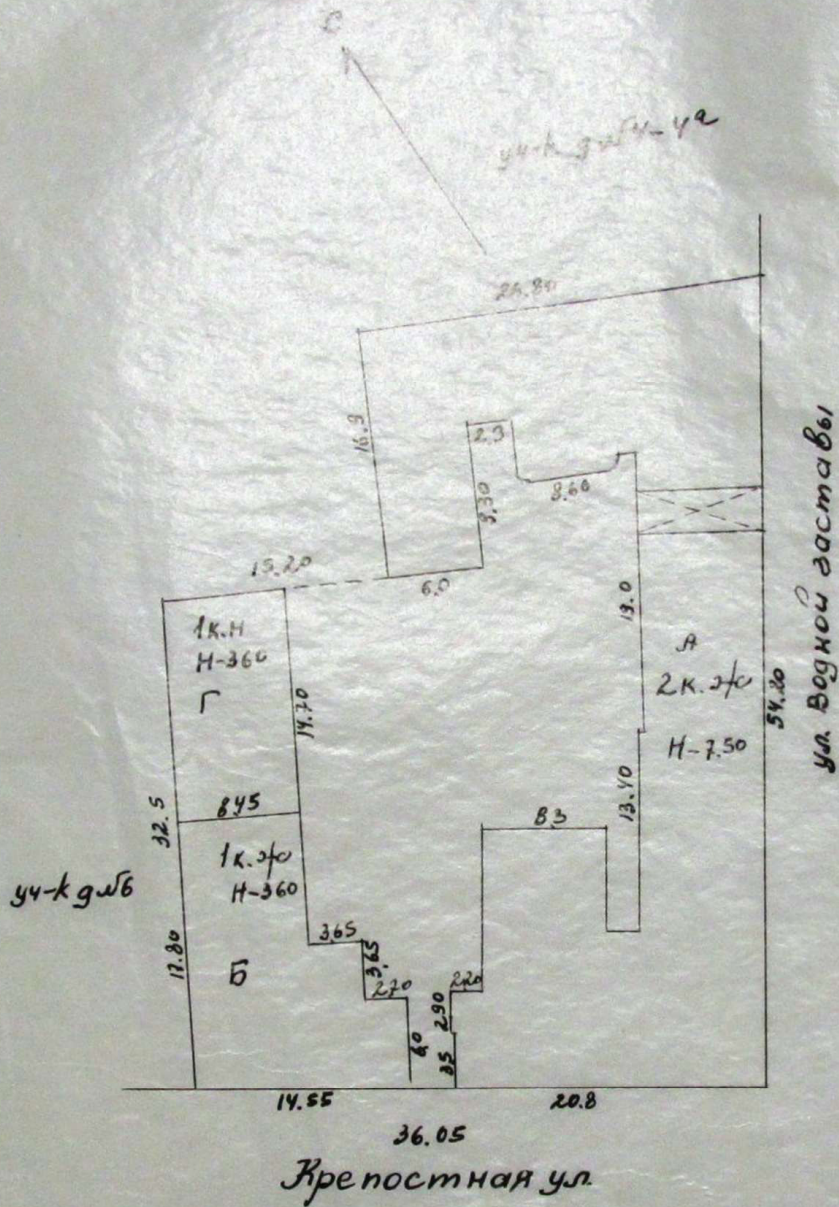 С
уч-к д №4-4а
16.9
2.3
9,30
8,60
15.20
6,0
1к.н
Н-360
Г
14.70
19.0
А
2к. ж/с
Н-7.50
54.20
ул. Водной заставы
32.5
845
13.40
8,3
1к. ж/с
Н-360
уч-к д №6
17.80
Б
3,65
3,65
2,70
2,20
2,90
6,0
35
14.55
20.8
36.05
Крепостная ул.